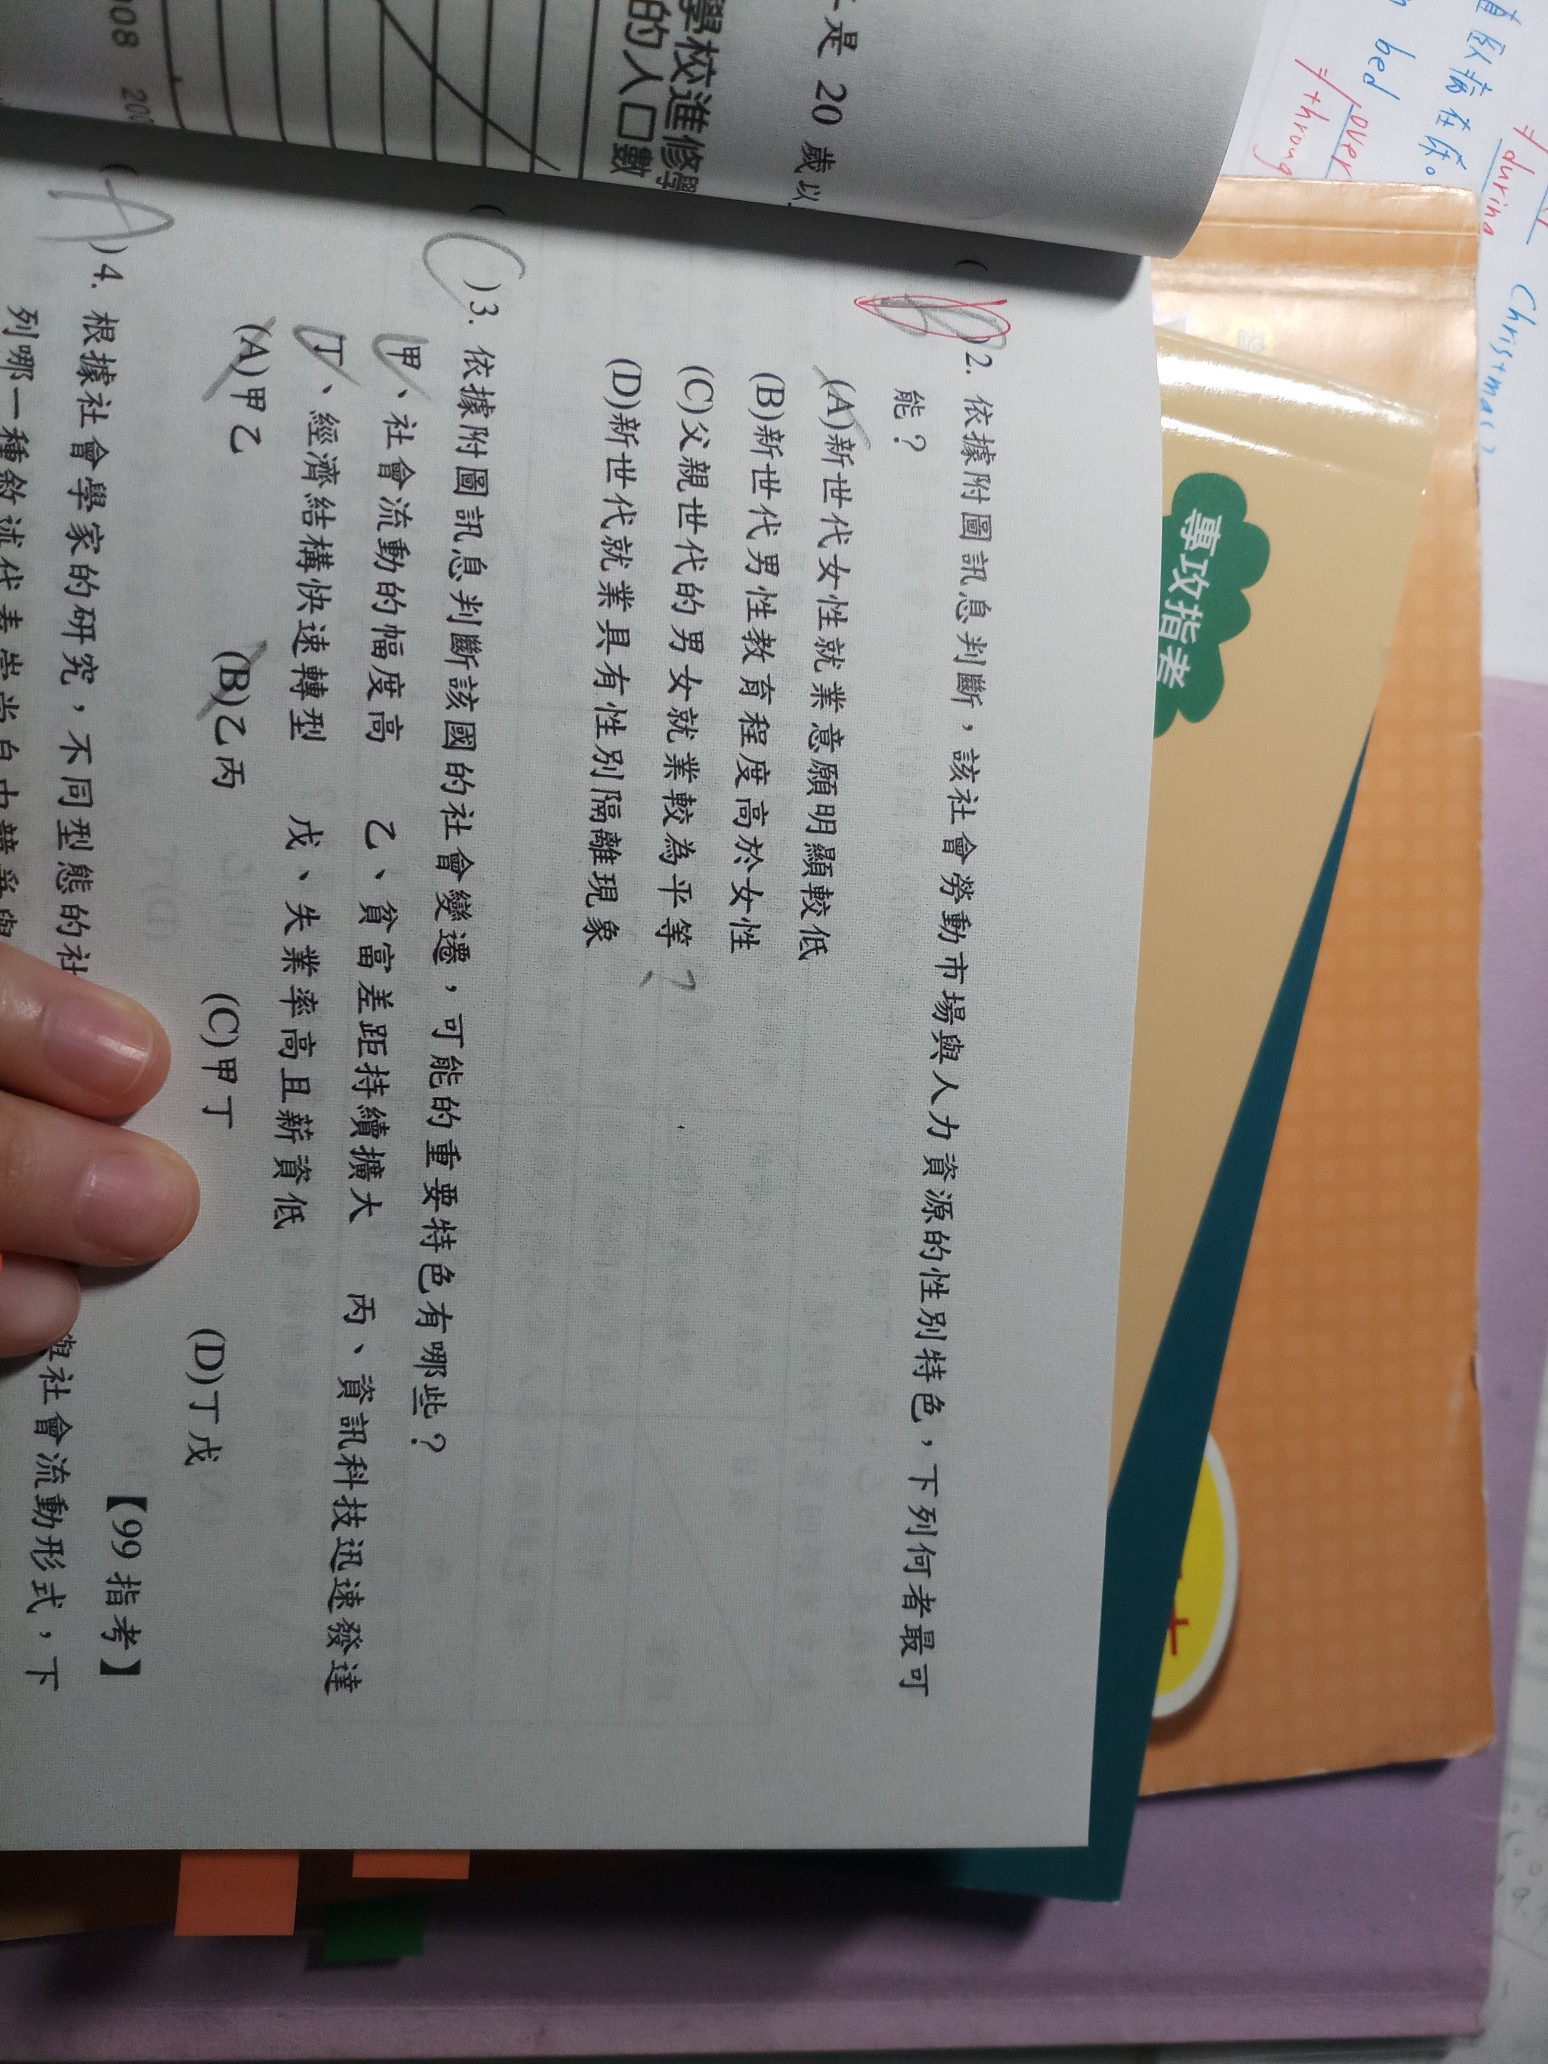 學校進修學
的人口數
008 200
是 20 歲以
(B)2. 依據附圖訊息判斷，該社會勞動市場與人力資源的性別特色，下列何者最可
能？
(A)新世代女性就業意願明顯較低
(B)新世代男性教育程度高於女性
(C)父親世代的男女就業較為平等？
(D)新世代就業具有性別隔離現象
(C)3. 依據附圖訊息判斷該國的社會變遷，可能的重要特色有哪些？
甲、社會流動的幅度高 乙、貧富差距持續擴大 丙、資訊科技迅速發達
丁、經濟結構快速轉型 戊、失業率高且薪資低
(A)甲乙 (B)乙丙 (C)甲丁 (D)丁戊
【99 指考】
(A)4. 根據社會學家的研究，不同型態的社 與社會流動形式，下
列哪一種敘述代表崇尚自由競爭與
專攻指考
bed
over
through
during
Christmas